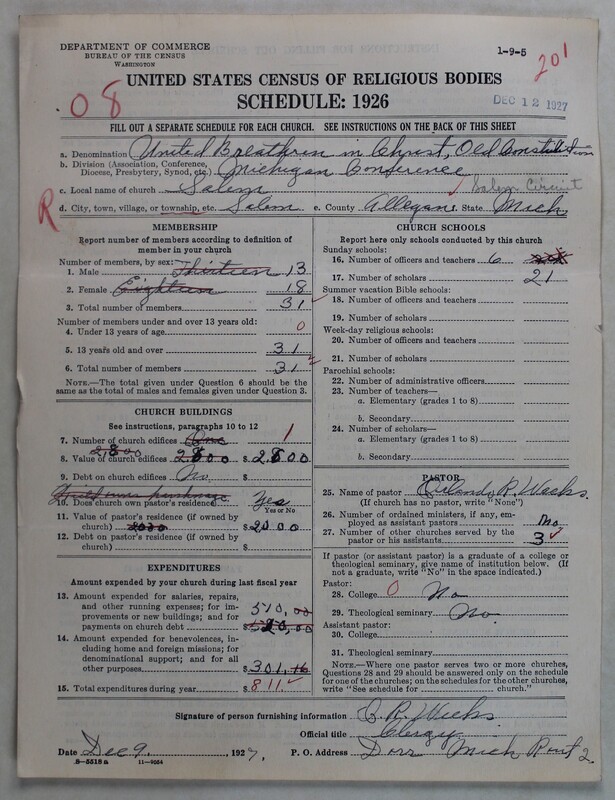 DEPARTMENT OF COMMERCE
BUREAU OF THE CENSUS
WASHINGTON
1-9-5
201
UNITED STATES CENSUS OF RELIGIOUS BODIES
08
SCHEDULE: 1926
DEC 12 1927
FILL OUT A SEPARATE SCHEDULE FOR EACH CHURCH. SEE INSTRUCTIONS ON THE BACK OF THIS SHEET
a. Denomination United Breathren in Christ, Old Constitution
b. Division (Association, Conference, Diocese, Presbytery, Synod, etc.) Michigan Conference
c. Local name of church Salem ✓ Salem Circuit
R d. City, town, village, or township, etc. Salem e. County Allegan f. State Mich.
MEMBERSHIP
Report number of members according to definition of
member in your church
Number of members, by sex:
1. Male Thirteen 13
2. Female Eighteen 18
3. Total number of members 31
Number of members under and over 13 years old:
4. Under 13 years of age 0
5. 13 years old and over 31
6. Total number of members 31
NOTE.—The total given under Question 6 should be
the same as the total of males and females given under Question 3.
CHURCH BUILDINGS
See instructions, paragraphs 10 to 12
7. Number of church edifices One 1
2,800
8. Value of church edifices 2800 $ 2800
9. Debt on church edifices No $
10. Does church own pastor's residence? Yes
Yes or No
11. Value of pastor's residence (if owned by
church) 2000 $ 2000
12. Debt on pastor's residence (if owned by
church) $
EXPENDITURES
Amount expended by church during last fiscal year
13. Amount expended for salaries, repairs,
and other running expenses; for im-
provements or new buildings; and for
payments on church debt 510,00
$ 520,00
14. Amount expended for benevolences, in-
cluding home and foreign missions; for
denominational support; and for all
other purposes $ 301,16
15. Total expenditures during year $ 811 ✓
CHURCH SCHOOLS
Report here only schools conducted by this church
Sunday schools:
16. Number of officers and teachers 6
17. Number of scholars 21
Summer vacation Bible schools:
18. Number of officers and teachers
19. Number of scholars
Week-day religious schools:
20. Number of officers and teachers
21. Number of scholars
Parochial schools:
22. Number of administrative officers
23. Number of teachers—
a. Elementary (grades 1 to 8)
b. Secondary
24. Number of scholars—
a. Elementary (grades 1 to 8)
b. Secondary
PASTOR
25. Name of pastor Orlando R. Weeks
(If church has no pastor, write "None")
26. Number of ordained ministers, if any, em-
ployed as assistant pastors No
27. Number of other churches served by the
pastor or his assistants 3 ✓
If pastor (or assistant pastor) is a graduate of a college or
theological seminary, give name of institution below. (If
not a graduate, write "No" in the space indicated.)
Pastor:
28. College 0 No
29. Theological seminary No
Assistant pastor:
30. College
31. Theological seminary
NOTE.—Where one pastor serves two or more churches,
Questions 28 and 29 should be answered only on the schedule
for one of the churches; on the schedules for the other churches,
write "See schedule for church."
Signature of person furnishing information O. R. Weeks
Official title Clergy
Date Dec 9, 1927, P. O. Address Dorr Mich Rout 2
8—5518a 11—9054